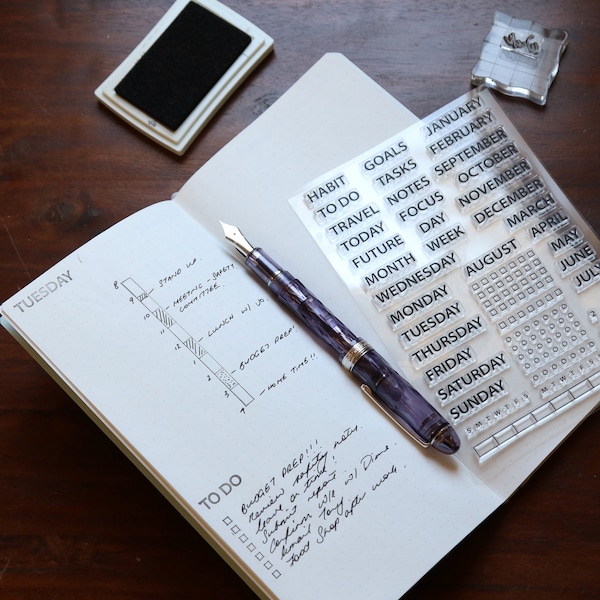 TUESDAY
8
9
10
11
12
1
2
3
4
STAND UP.
MEETING - SAFETY
COMMITTEE.
LUNCH W/ JO.
BUDGET PREP!
HOME TIME!!
TO DO
BUDGET PREP!!!
review safety notes.
leave on time
Submit report
Confirm W/E w/ Diane.
Email Tony
Food Shop after work.
HABIT
TO DO
TRAVEL
TODAY
FUTURE
MONTH
WEDNESDAY
MONDAY
TUESDAY
THURSDAY
FRIDAY
SATURDAY
SUNDAY
GOALS
TASKS
NOTES
FOCUS
DAY
WEEK
JANUARY
FEBRUARY
SEPTEMBER
OCTOBER
NOVEMBER
DECEMBER
MARCH
APRIL
AUGUST
MAY
JUNE
JULY
S M T W T F S
M T W T F S